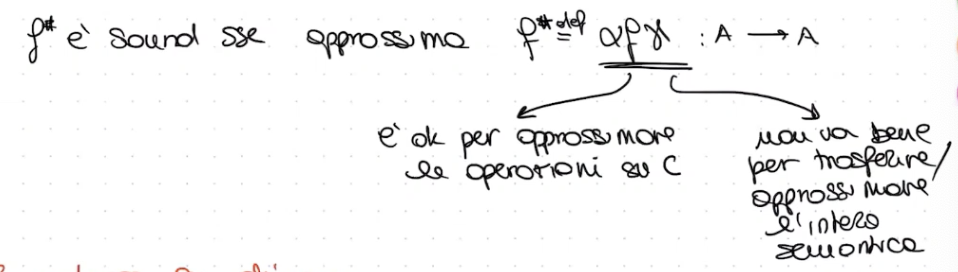 f# è sound sse approssima f# def= αfγ : A → A
è ok per approssimare
le operazioni su C
non va bene
per trasferire/
approssimare
l'intera
semantica